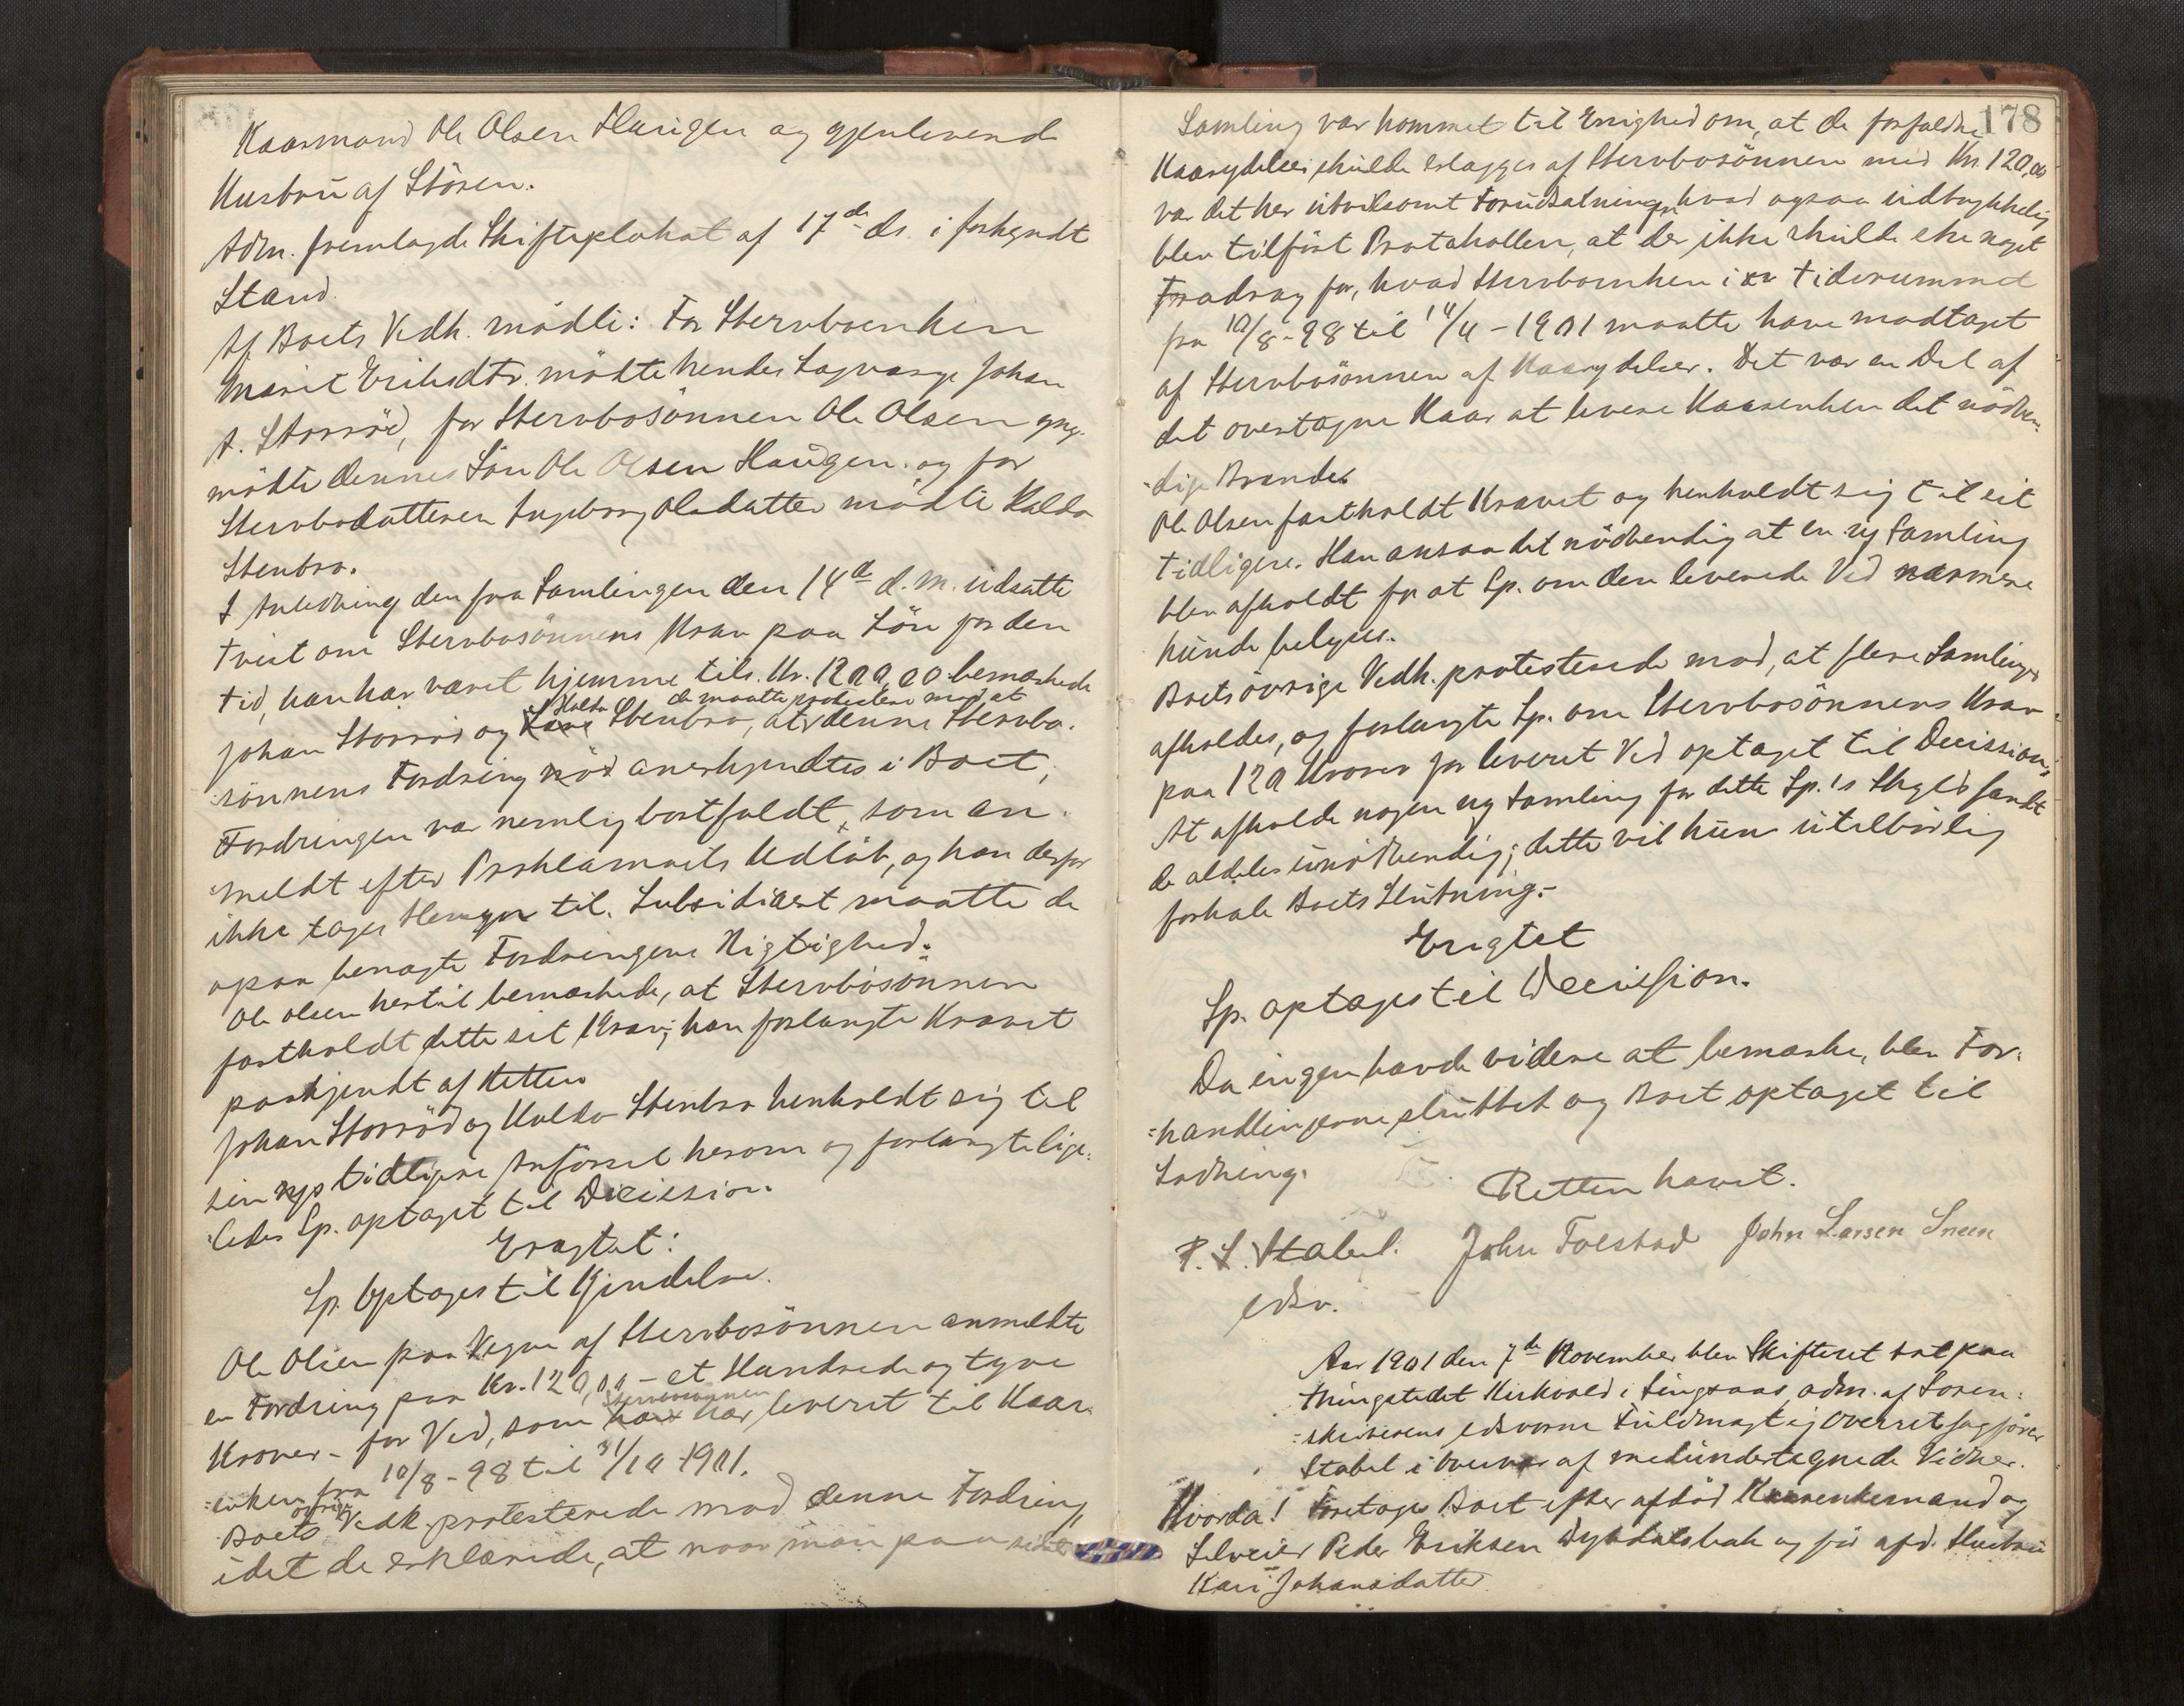 Kaarmand Ole Olsen Haugen og gjenlevende
Hustru af Stören.
Adm. fremlagde Skifteplakat af 17de ds. i forkyndt
Stand.
Af Boets Vedk. mödte: For Stervboenken
Marit Eriksdtr. mödte hendes Lagværge Johan
A. Storröd, for Stervbosönnen Ole Olsen
mödte dennes Sön Ole Olsen Haugen. og for
Stervbodatteren Ingeborg Olsdatter mödte Haldo
Stenbro.
I Anledning den fra Samlingen den 14de d. M. udsatte
Tvist om Stervbosönnens Krav paa Lön for den
tid, han har været hjemme tils. Kr. 1200,00 bemærkede
Haldo de maatte protestere mod at
Johan Storröd og Stenbro, at denne Stervbo-
sönnens Fordring anerkjendtes i Boet;
Fordringen var nemlig bortfaldt, som an-
meldt efter Proklamaets Udlöb, og kan derfor
ikke tages Hensyn til. Subsidiært maatte de
ogsaa benægte Fordringens Rigtighed.
Ole Olsen hertil bemærkede, at Stervbosönnen
fastholdt dette sit Krav; han forlangte Kravet
paakjendt af Retten
Johan Storröd og Haldo Stenbro henholdt sig til
sin tidligere Anförsel herom og forlangte lige-
ledes Sp. optaget til Decision.
Eragtet:
Sp. Optages til Kjendelse.
Ole Olsen paa Vegne af Stervbosönnen anmeldte
en Fordring paa Kr. 120,00 - et Hundrede og tyve
Stervbosönnen
Kroner - for Ved, som har leveret til Kaar-
enken fra 10/8-98 til 31/10-1901.
övrige
Boets Vedk. protesterede mod denne Fordring,
idet de erklærede, at naar man paa sidste
178
Samling var kommet til Enighed om, at de forfaldne
Kaarydelser skulde erlægges af Stervbosönnen med Kr. 120,00
var det her utvilsomt Forudsætningen, hvad ogsaa udtrykkelig
blev tilfört Protokollen, at der ikke skulde ske noget
Fradrag for, hvad Stervboenken i tidsrummet
fra 10/8-98 til 14/11-1901 maatte have modtaget
af Stervbosönnen af Kaarydelser. Det var en Del af
det overtagne Kaar at levere Kaarenken det nödven-
dige Brænde.
Ole Olsen fastholdt Kravet og henholdt sig til sit
tidligere. Han ansaa det nödvendig at en ny Samling
blev afholdt for at Sp. om den leverede Ved nærmere
kunde belyses.
Boets övrige Vedk. protesterede mod, at flere Samlinger
afholdes, og forlangte Sp. om Stervbosönnens Krav
paa 120 Kroner for leveret Ved optaget til Decission.
At afholde nogen ny Samling for dette Sp.'s Skyld fandt
de aldeles unödvendig; dette vil kun utilbörlig
forhale Boets Slutning.-
Eragtet
Sp. optages til Decission.
Da ingen havde videre at bemærke, blev For-
handlingerne sluttet og Boet optaget til
Lodning.
Retten hævet.
P. L. Stabel. John Folstad John Larsen Sneen
edsv.
Aar 1901 den 7de November blev Skifteret sat paa
Thingstedet Kirkvold i Singsaas adm. af Soren-
skriverens edsvorne Fuldmægtig Overretssagförer
Stabel i Overvær af medundertegnede Vidner.
Hvorda! Foretoges Boet efter afdöd Kaarenkemand og
Selveier Peder Eriksen og för afd. Hustru
Kari Johansdatter